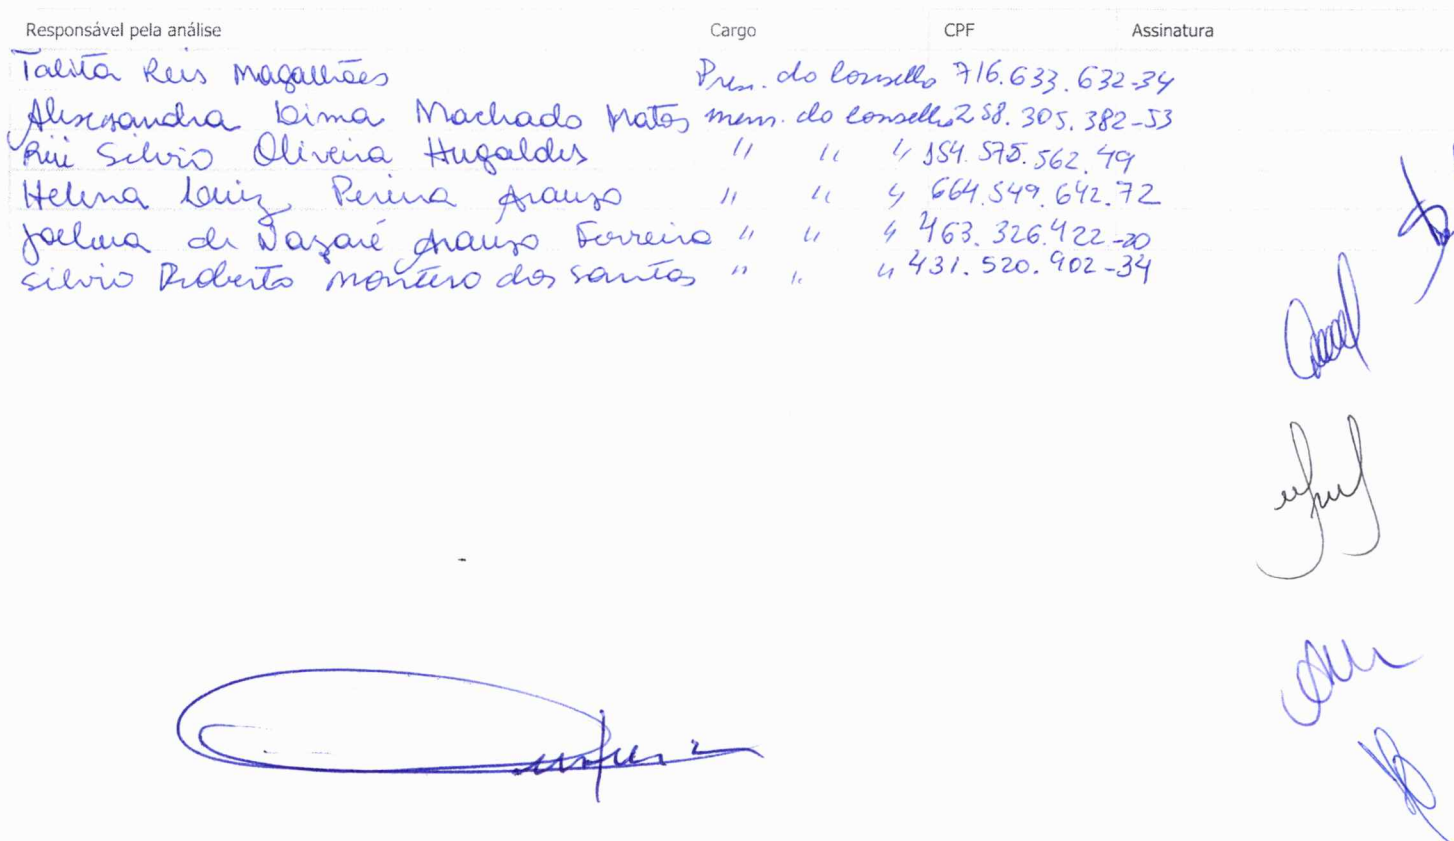 Responsável pela análise Cargo CPF Assinatura
Talita Reis Magalhães Pres. do Conselho 716.633.632-34
Alessandra Lima Machado Matos mem. do conselho 258.305.382-53
Rui Silvio Oliveira Hugaldes " " " 154.575.562.49
Helena Luiz Pereira Araujo " " " 664.549.642.72
Joelma de Nazaré Araujo Ferreira " " " 463.326.422-20
Silvio Roberto Monteiro dos Santos " " " 431.520.902-34